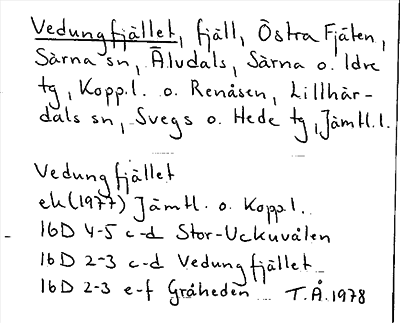 Vedungfjället, fjäll, Östra Fjäten,
Särna sn, Älvdals, Särna o. Idre
tg, Kopp.l. o. Renåsen, Lillhär-
dals sn, Svegs o. Hede tg, Jämtl.l.
Vedungfjället
ek (1977) Jämtl. o. Kopp.l.
16D 4-5 c-d Stor-Uckuvålen
16D 2-3 c-d Vedungfjället
16D 2-3 e-f Gråheden T.Å. 1978